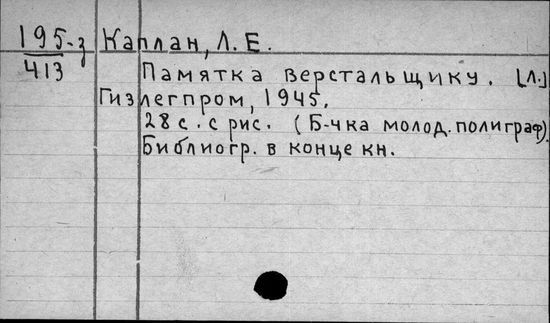 195-з Каплан, Л. Е.
413
Памятка верстальщику. [Л.]
Гизлегпром, 1945.
28 с. с рис. (Б-чка молод. полиграф).
Библиогр. в конце кн.